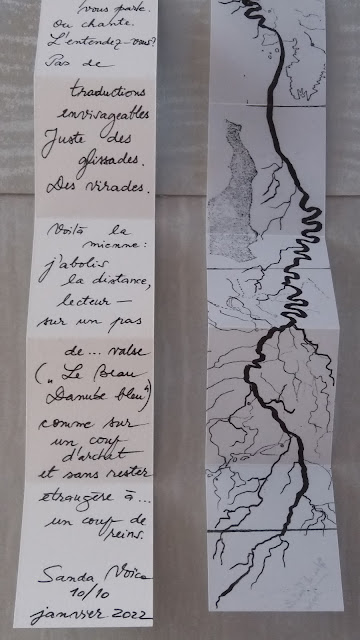 vous parle.
Ou chante.
L'entendez-vous?
Pas de
traductions
envisageables
Juste des
glissades.
Des virades.
Voilà la
mienne:
j'abolis
la distance,
lecteur —
sur un pas
de... valse
("Le Beau
Danube bleu")
comme sur
un coup
d'archet
et sans rester
étrangère à...
un coup de
reins.
Sanda Voïca
10/10
janvier 2022